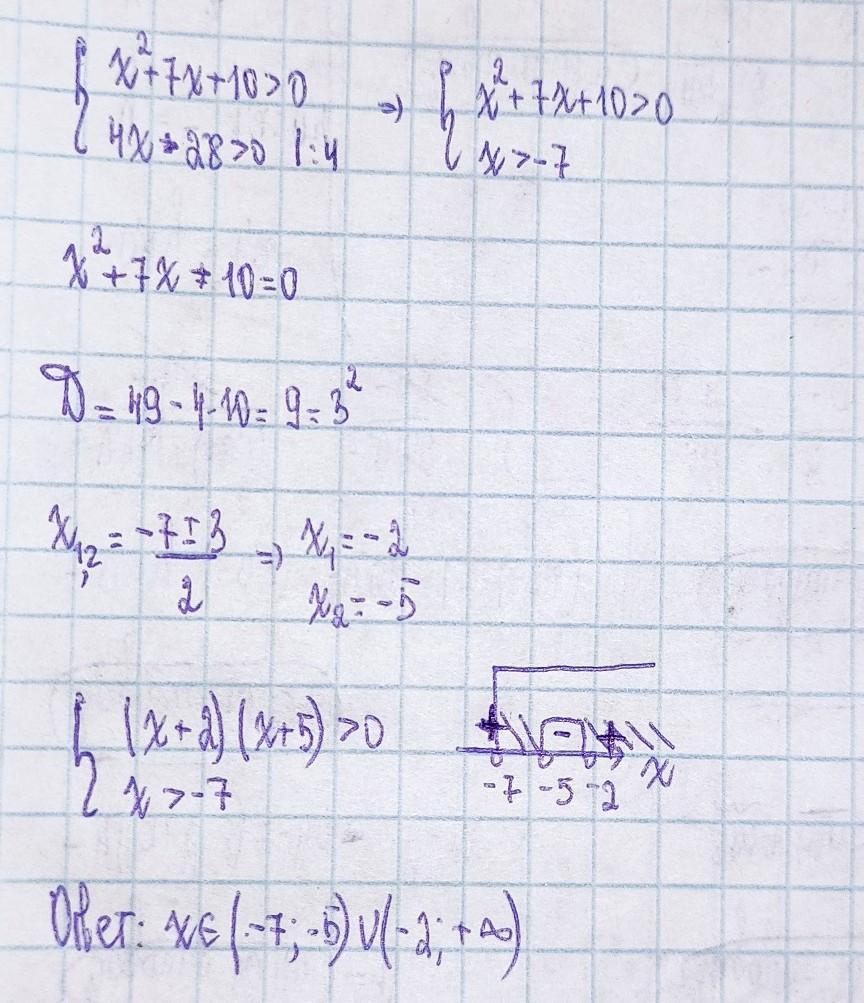 { x²+7x+10>0 => { x²+7x+10>0
4x+28>0 |:4 x>-7
x²+7x+10=0
D=49-4·10=9=3²
x₁,₂=(-7±3)/2 => x₁=-2
x₂=-5
{ (x+2)(x+5)>0
x>-7
+ - +
-7 -5 -2 x
Ответ: x∈(-7;-5)∪(-2;+∞)